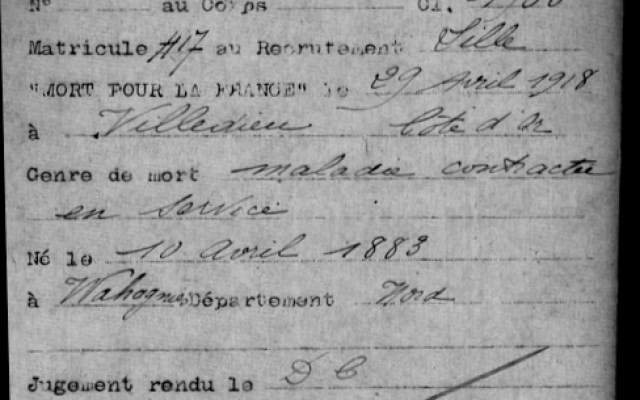 N° au Corps Cl.
Matricule 417 au Recrutement Lille
"MORT POUR LA FRANCE" le 29 Avril 1918
à Villedieu Côte d'Or
Genre de mort maladie contractée
en service
Né le 10 Avril 1883
à Wahagnies Département Nord
Jugement rendu le D C